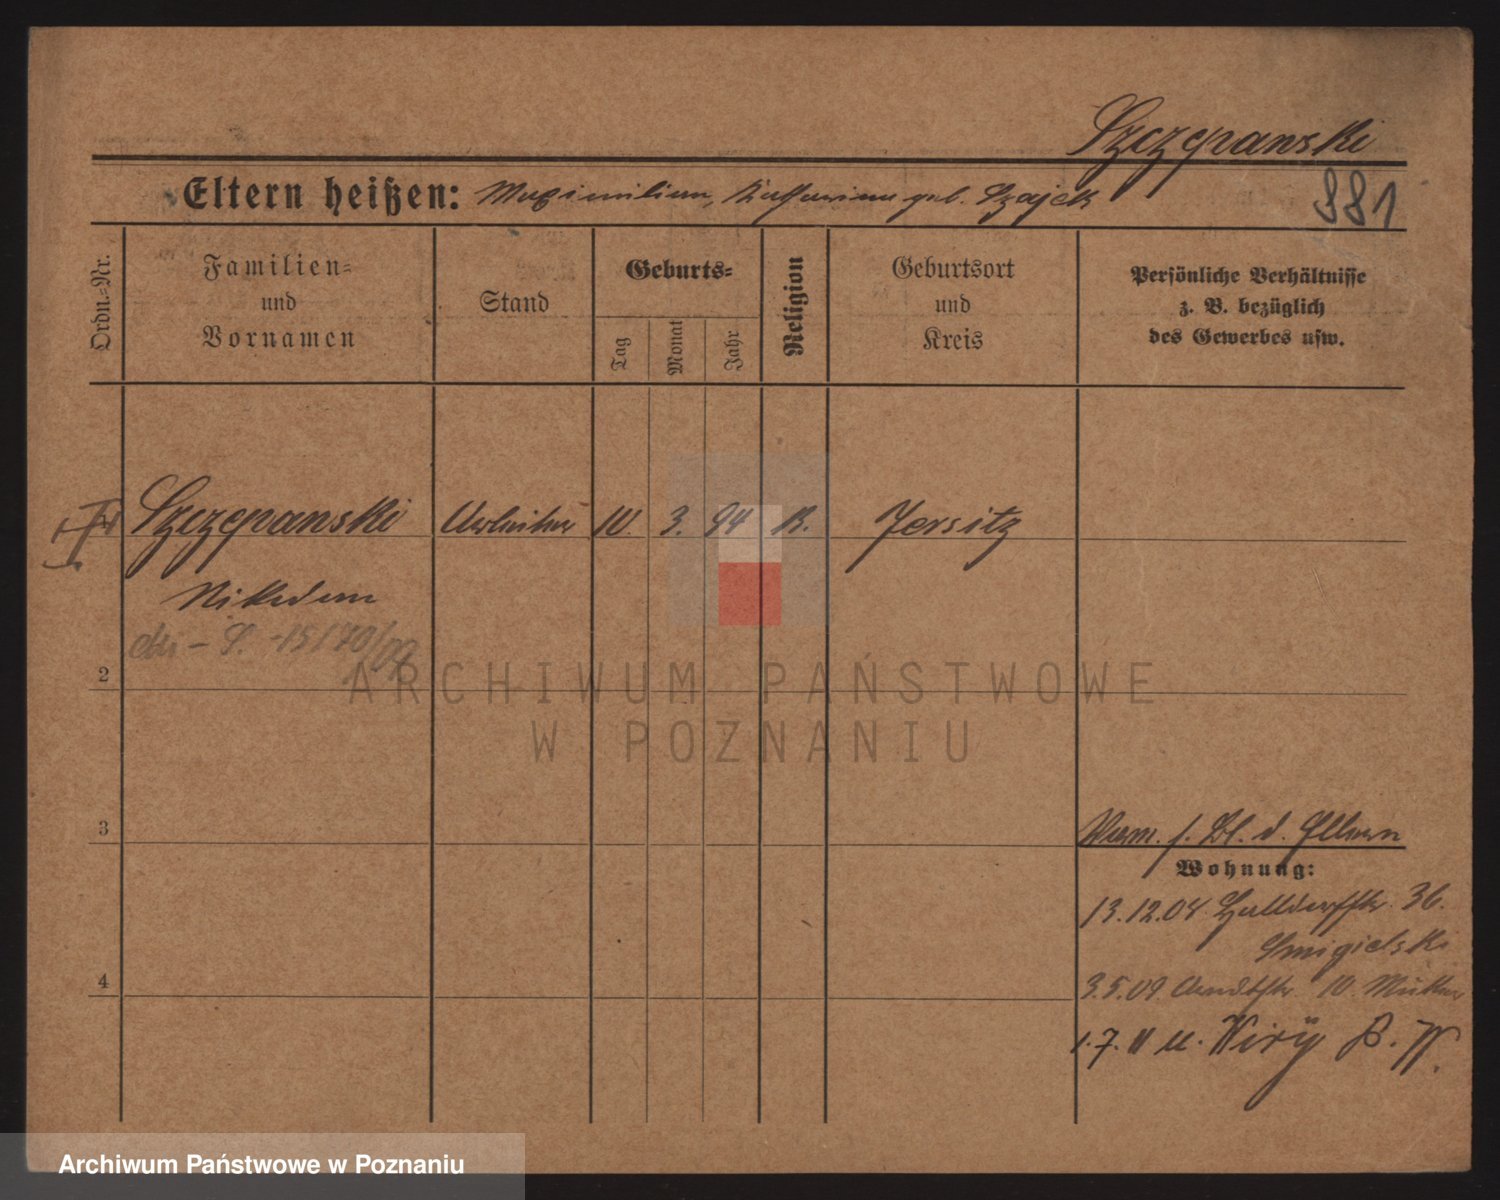 Szczepanski
Eltern heißen: Maximilian, Katharina geb. Szajek
881
Ordn.-Nr.
Familien-
und
Vornamen
Stand
Geburts-
Tag
Monat
Jahr
Religion
Geburtsort
und
Kreis
Persönliche Verhältnisse
z. B. bezüglich
des Gewerbes usw.
Szczepanski Arbeiter 10. 3. 94 K. Jersitz
Nikodem
2
3
4
Verm. s. Bl. d. Eltern
Wohnung:
13.12.04 36.
Smigielski
3.5.09 Arndtstr 10. Mutter
1.7.11 n. Kiry P. W.
ARCHIWUM PAŃSTWOWE
W POZNANIU
Archiwum Państwowe w Poznaniu